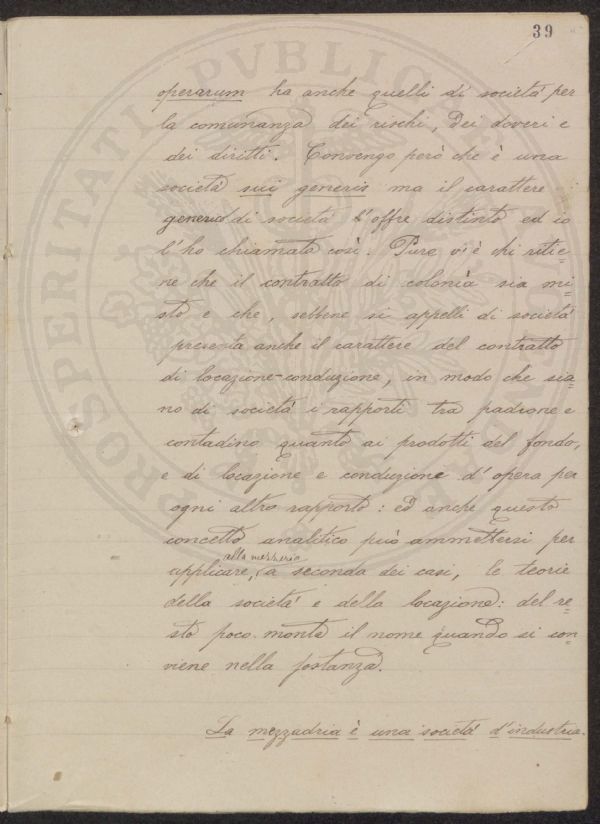 39
operarum ha anche quelli di società per
la comunanza dei rischi, dei doveri e
dei diritti. Convengo però che è una
società sui generis ma il carattere
generico di società l'offre distinto ed io
l'ho chiamata così. Pure v'è chi ritie=
ne che il contratto di colonìa sia mi=
sto e che, sebbene si appelli di società
presenta anche il carattere del contratto
di locazione-conduzione, in modo che sia=
no di società i rapporti tra padrone e
contadino quanto ai prodotti del fondo,
e di locazione e conduzione d'opera per
ogni altro rapporto: ed anche questo
concetto analitico può ammettersi per
alla mezzeria
applicare, a seconda dei casi, le teorie
della società e della locazione: del re=
sto poco monta il nome quando si con=
viene nella sostanza.
La mezzadria è una società d'industria.
PROSPERITATI PVBLICAE